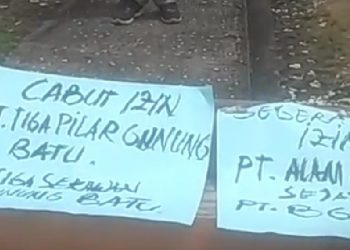 CABUT IZIN
T. TIGA PILAR GUNUNG
BATU.
TIGA SERANGKAI
GUNUNG BATU.
SEGERA
IZIN
PT. ALAM
SEJA
PT. BG